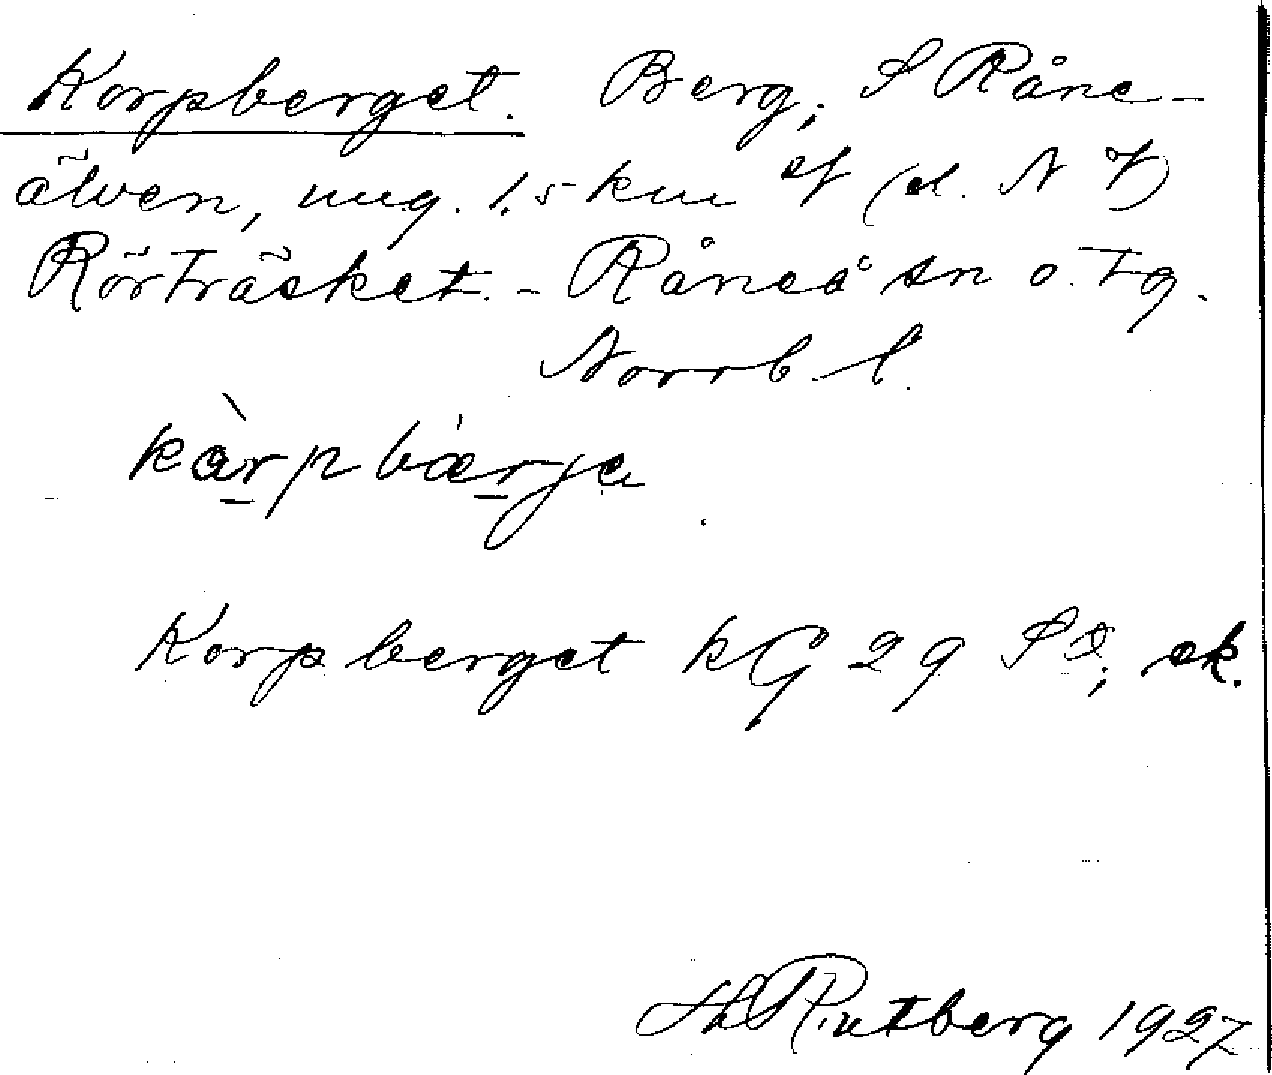 Korpberget. Berg, S Råne-
älven, ung. 1,5 km (d. N
Rörträsket. - Råneå sn o. tg.
Norrb. l.
kàrpbærje
Korpberget kG 29 SO; ek.
H Rutberg 1927